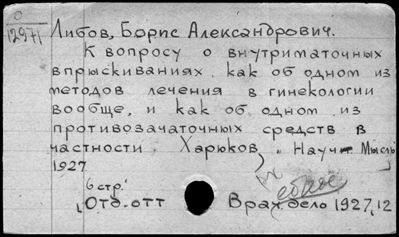 0
12971
Либов, Борис Александрович.
К вопросу о внутриматочных
впрыскиваниях, как об одном из
методов лечения в гинекологии
вообще, и как об одном из
противозачаточных средств в
частности. Харюков, "Науч Мысль"
1927
6 стр.
(Отд. отт Врач. дело 1927, 12